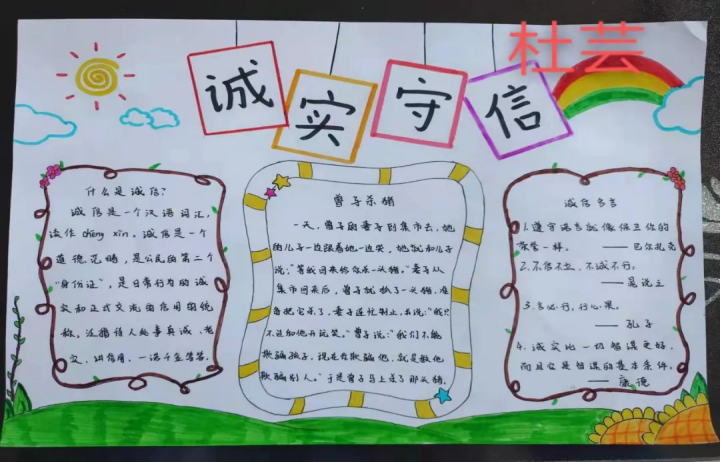 杜芸
诚实守信
什么是诚信?
诚信是一个汉语词汇,
读作chéng xìn。诚信是一个
道德范畴,是公民的第二个
“身份证”,是日常行为的诚
实和正式交流的信用的统
称。泛指待人处事真诚、老
实、讲信用、一诺千金等等。
曾子杀猪
一天,曾子的妻子到集市去,他
的儿子一边跟着她一边哭,她就和儿子
说:“等我回来给你杀一头猪。”妻子从
集市回来后,曾子就抓了一头猪,准
备把它杀了,妻子连忙制止,并说:“我只
不过和他开玩笑。”曾子说:“我们不能
欺骗孩子,现在你欺骗他,就是教他
欺骗别人。”于是曾子马上杀了那头猪。
诚信名言
1.遵守诺言就像保卫你的
荣誉一样。 ——巴尔扎克
2.不信不立,不诚不行。
——晁说之
3.言必行,行必果。
——孔子
4.诚实比一切智谋更好,
而且它是智谋的基本条件。
——康德